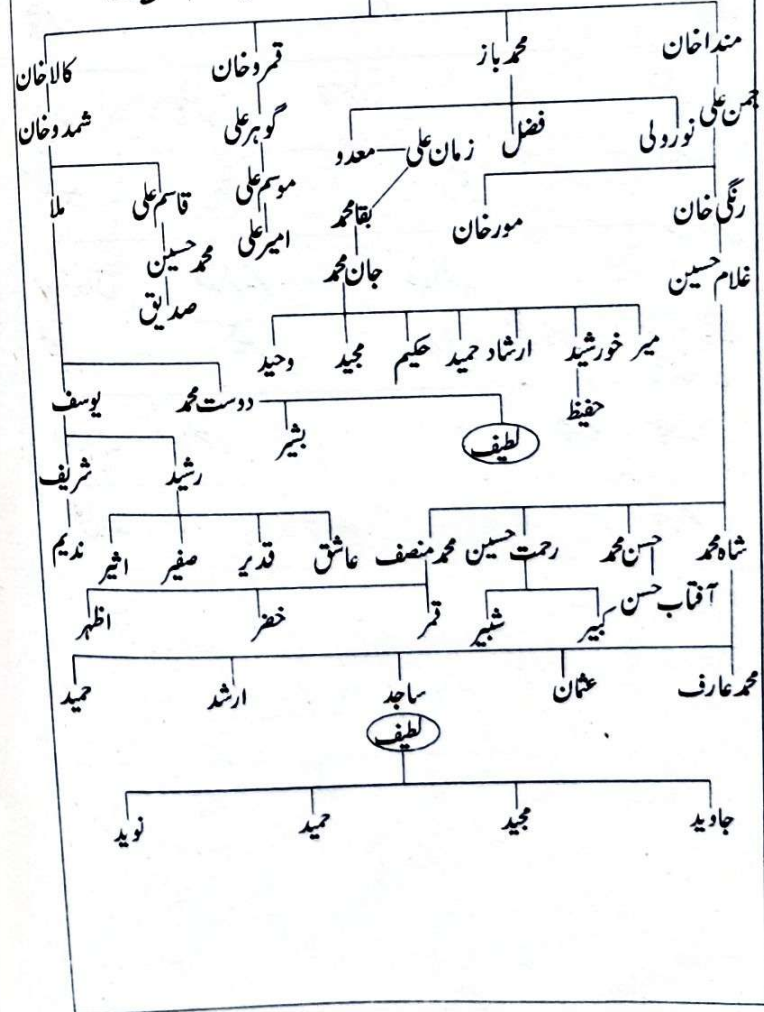 منداخان محمدباز قمروخان کالاخان
جمن علی نورولی فضل زمان علی معدو گوہرعلی شمدوخان
رنگی خان مورخان بقامحمد موسم علی قاسم علی ملا
غلام حسین جان محمد امیرعلی محمدحسین
صدیق
میر خورشید ارشاد حمید حکیم مجید وحید
حفیظ لطیف بشیر دوست محمد یوسف
رشید شریف
شاہ محمد حسن محمد رحمت حسین محمدمنصف عاشق قدیر صفیر اثیر ندیم
آفتاب حسن کبیر شبیر قمر خضر اظہر
محمدعارف عثمان ساجد ارشد حمید
لطیف
جاوید مجید حمید نوید